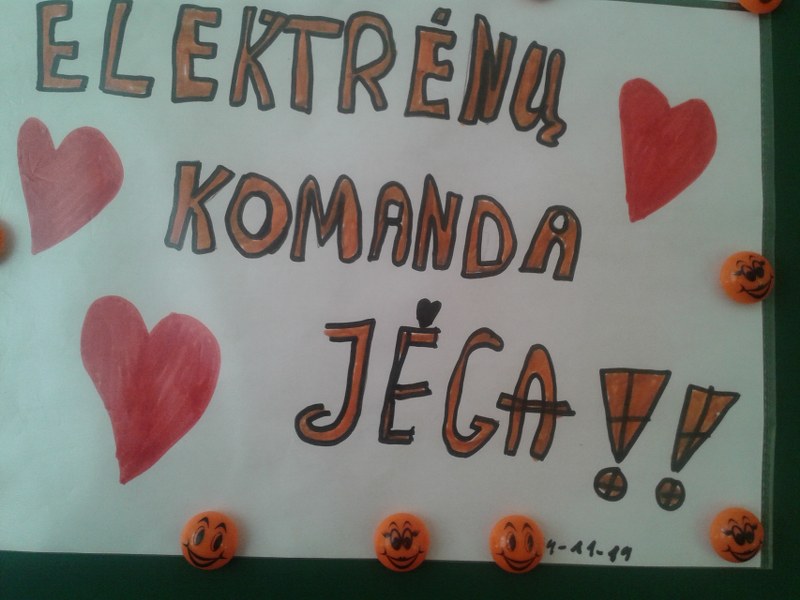 ELEKTRĖNŲ
KOMANDA
JĖGA!!
4-11-19